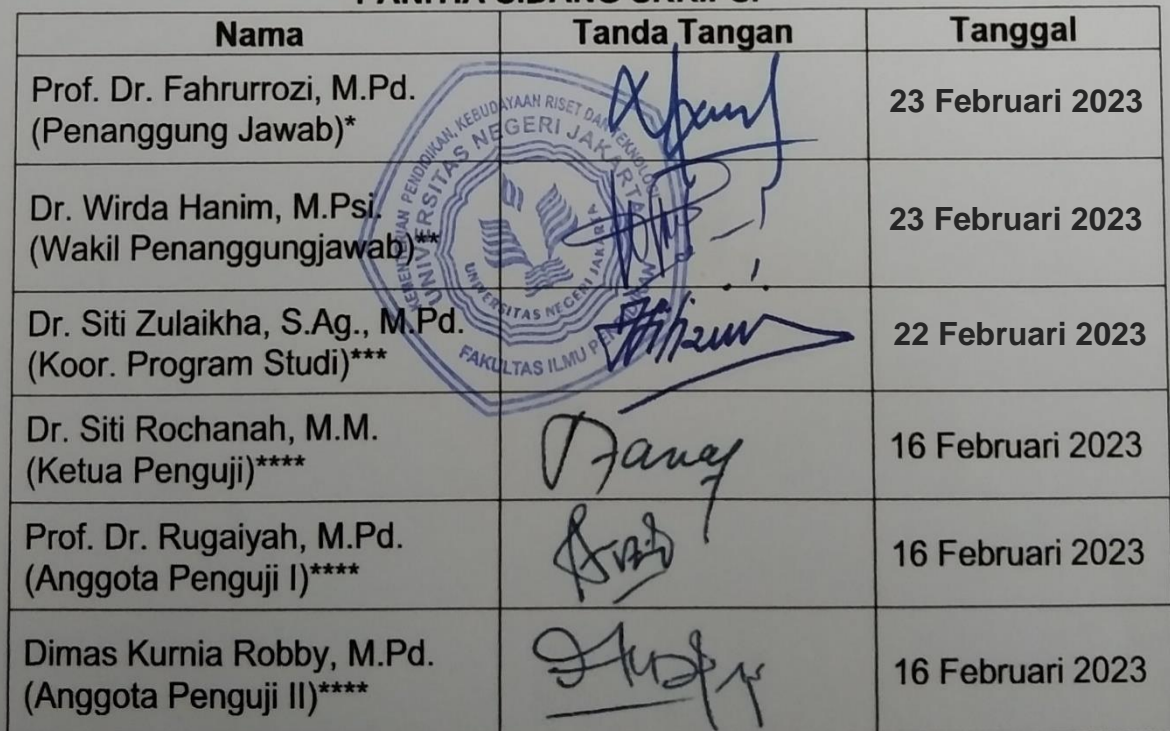 PANITIA SIDANG SKRIPSI
Nama Tanda Tangan Tanggal
Prof. Dr. Fahrurrozi, M.Pd.
(Penanggung Jawab)*
23 Februari 2023
Dr. Wirda Hanim, M.Psi.
(Wakil Penanggungjawab)**
23 Februari 2023
Dr. Siti Zulaikha, S.Ag., M.Pd.
(Koor. Program Studi)***
22 Februari 2023
Dr. Siti Rochanah, M.M.
(Ketua Penguji)****
16 Februari 2023
Prof. Dr. Rugaiyah, M.Pd.
(Anggota Penguji I)****
16 Februari 2023
Dimas Kurnia Robby, M.Pd.
(Anggota Penguji II)****
16 Februari 2023
KEMENTERIAN PENDIDIKAN, KEBUDAYAAN RISET DAN TEKNOLOGI
UNIVERSITAS NEGERI JAKARTA
UNIVERSITAS NEGERI JAKARTA
FAKULTAS ILMU PENDIDIKAN